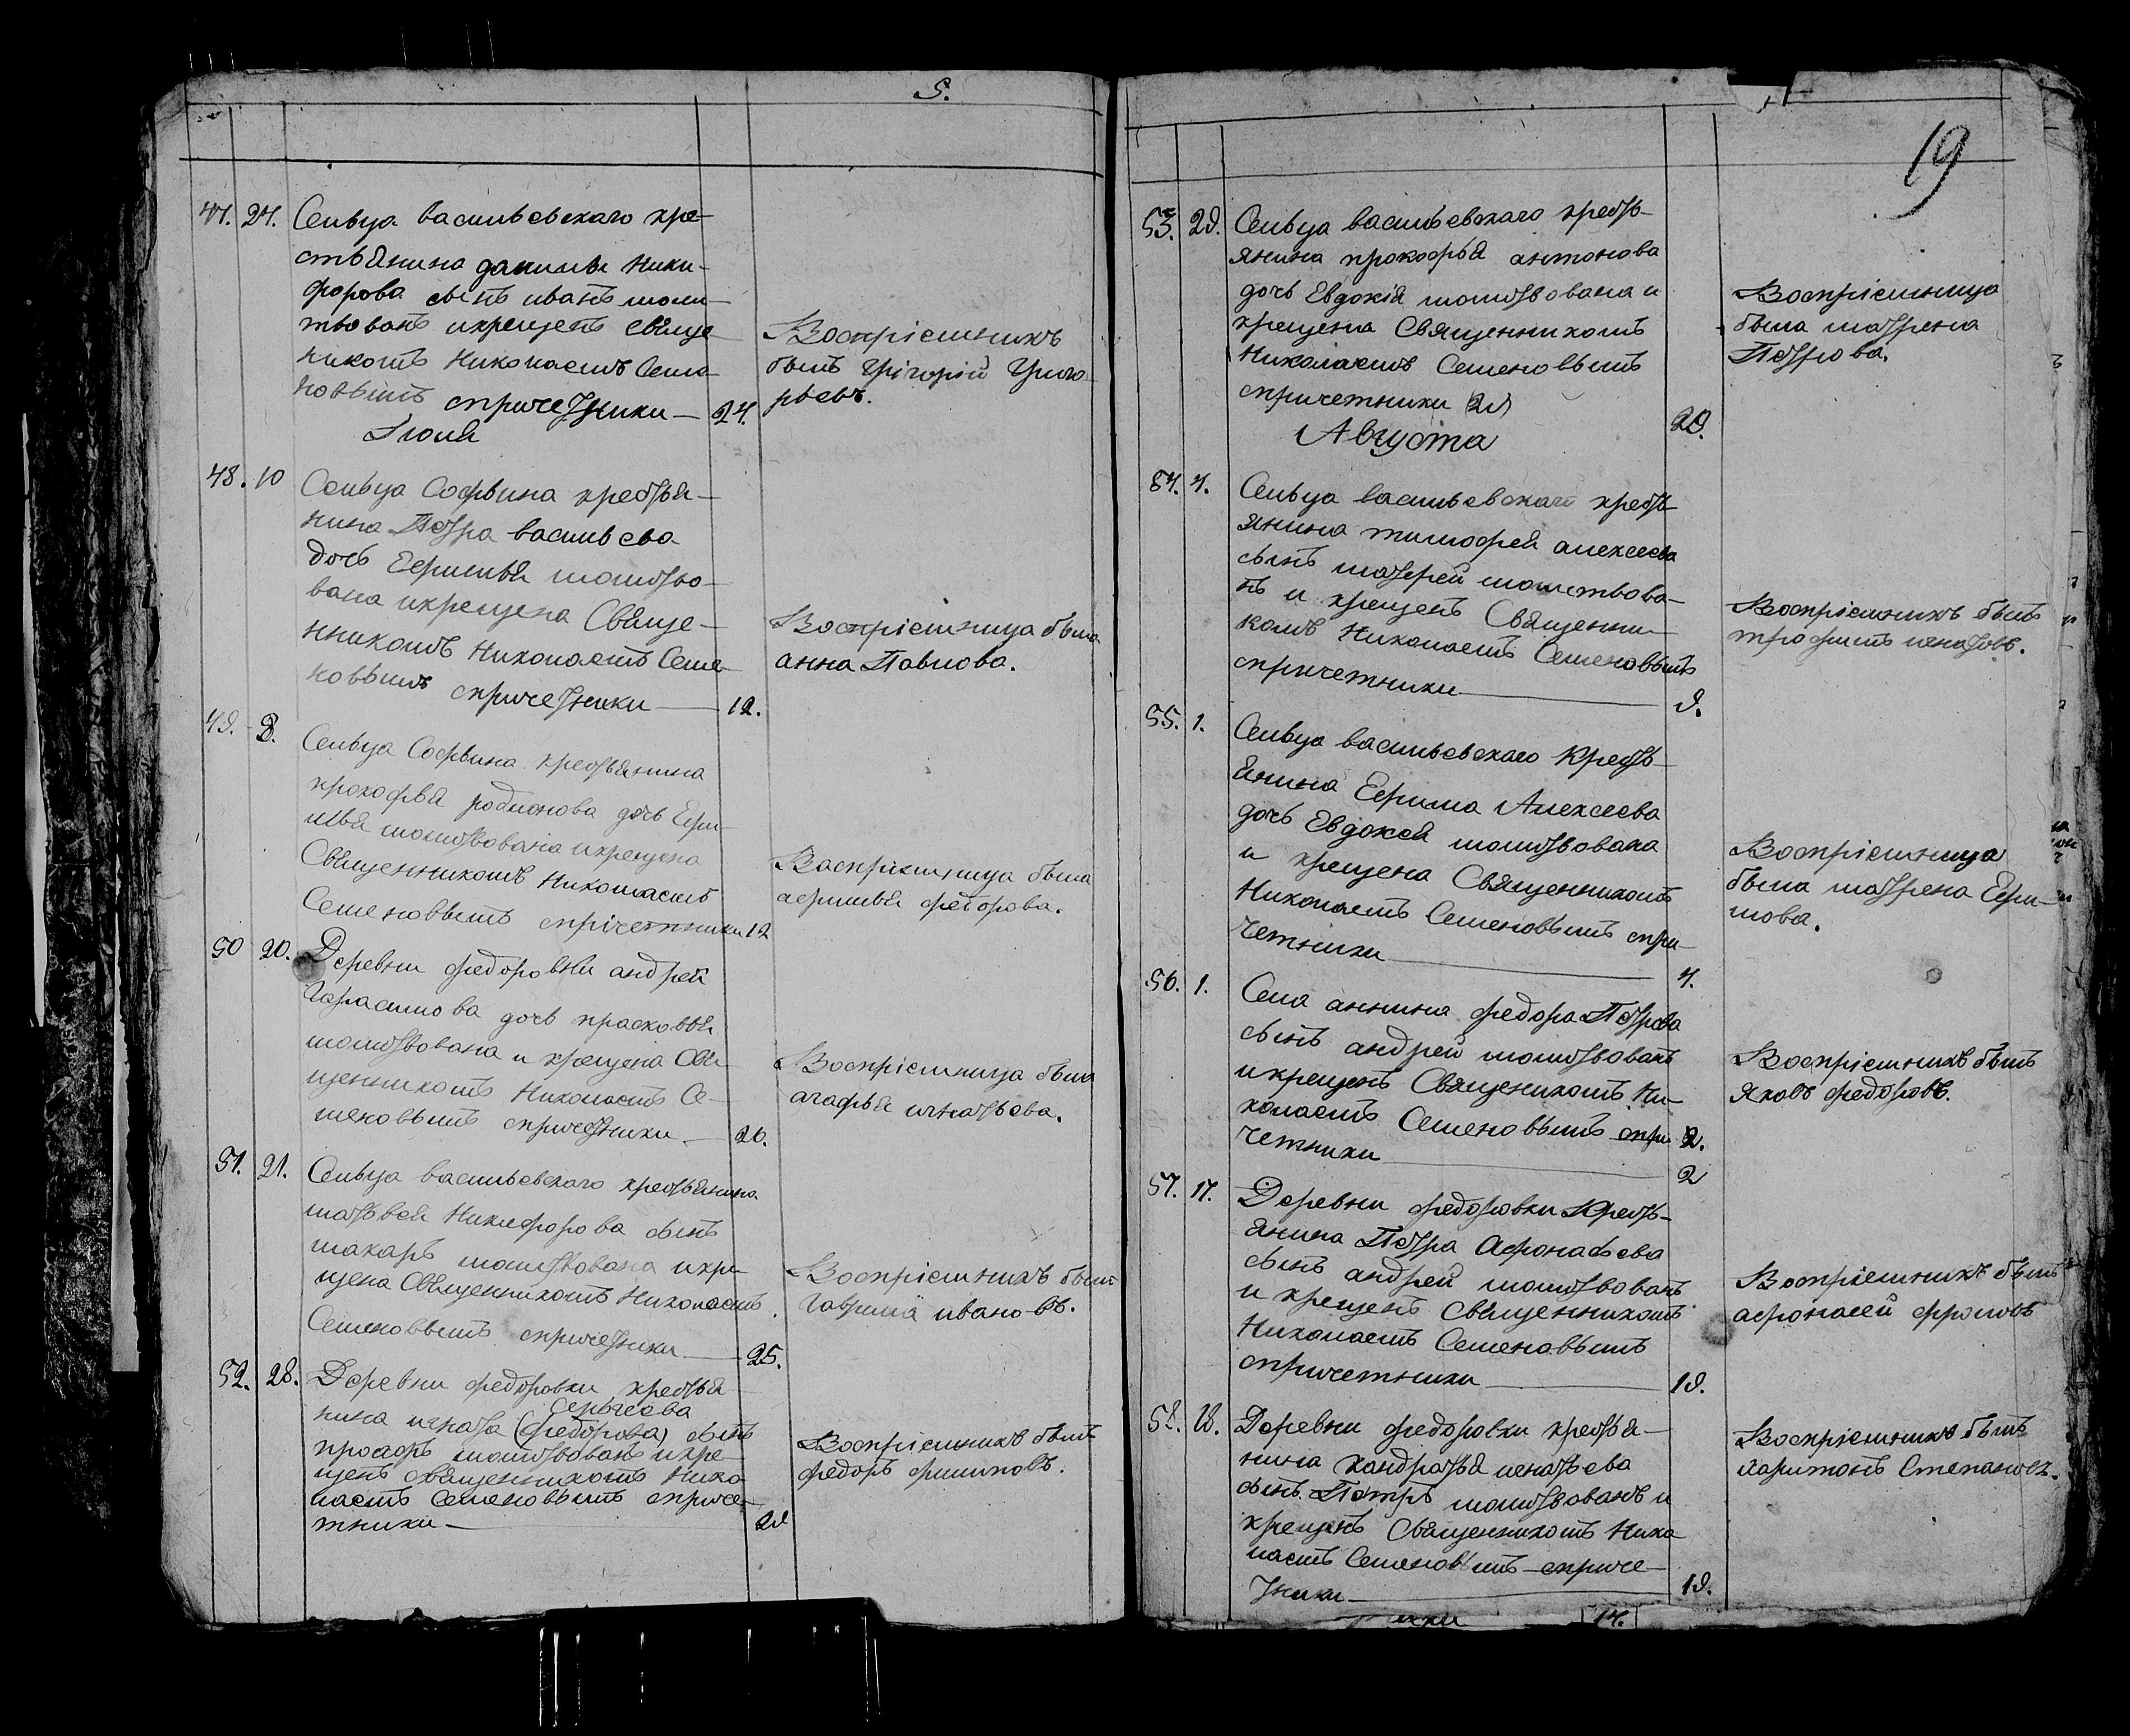 5.
47. 24. Сельца васильевскаго кре-
стьянина данилы Ники-
форова сынъ иванъ моли-
твованъ икрещенъ свяще
никомъ Николаемъ Семе
новымъ спричетники — 24.
Воспріемникъ
былъ Григорій Григо-
рьевъ.
Іюля
48. 10 Сельца Софьина крестья-
нина Петра васильева
дочь Ефимья молитво-
вана икрещена Свяще-
нникомъ Николаемъ Семе-
новымъ спричетники — 12.
Воспріемница была
анна Павлова.
49. 8. Сельца Софьина крестьянина
прокофья родионова дочь Ефи-
мья молитвована икрещена
Священникомъ Николаемъ
Семеновымъ спричетники 12
Васпріемница была
афимья федорова.
50 20. Деревни федоровки андрея
Гарасимова дочь прасковья
молитвована и крещена Свя-
щенникомъ Николаемъ Се-
меновымъ спричетники — 20.
Воспріемница была
агафья игнатьева.
51. 21. Сельца васильевскаго крестьянина
матвея Никифорова сынъ
макаръ молитвована икре-
щена Священникомъ Николаемъ
Семеновымъ спричетники — 25.
Воспріемникъ былъ
Гаврила ивановъ.
52. 28. Деревни федоровки крестья
Сергеева
нина игната (федорова) сынъ
молитвованъ икре-
щенъ священникомъ Нико
лаемъ Семеновымъ спричет-
тники — 29
Воспріемникъ былъ
федоръ филиповъ.
19
53. 29. Сельца васильевскаго кресть-
янина прокофья антонова
дочь Евдокія молитвована и
крещена Священникомъ
Николаемъ Семеновымъ
спричетники 29
29.
Воспріемница
была матрена
Петрова.
Августа
54. 4. Сельца васильевскаго кресть
янина тимофея алексеева
сынъ молитвова-
нъ и крещенъ Священни-
комъ Николаемъ Семеновымъ
спричетники — 9.
Воспріемникъ былъ
трофимъ игнатовъ.
55. 1. Сельца васильевскаго Кресть-
янина Ефима Алексеева
дочь Евдокея молитвована
и крещена Священникомъ
Николаемъ Семеновымъ спри-
четники — 4.
Воспріемница
была матрена Ефи-
мова.
56. 1. Села аннина федора Петрова
сынъ андрей молитвованъ
икрещенъ Священикомъ Ни-
колаемъ Семеновымъ спри 2.
четники — 2
Воспріемникъ былъ
Яковъ федоровъ.
57. 17. Деревни федоровки Кресть-
янина Петра Афонасьева
сынъ андрей молитвованъ
и крещенъ Священникомъ
Николаемъ Семеновымъ
спричетники — 19.
Воспріемникъ былъ
афонасей фроловъ
58. 18. Деревни федоровки крестья-
нина кандратья игнатьева
сынъ Петръ молитвованъ и
крещенъ Священникомъ Нико
лаемъ Семеновымъ спричет-
тники — 19.
Воспріемникъ былъ
харитонъ Степановъ.
14.